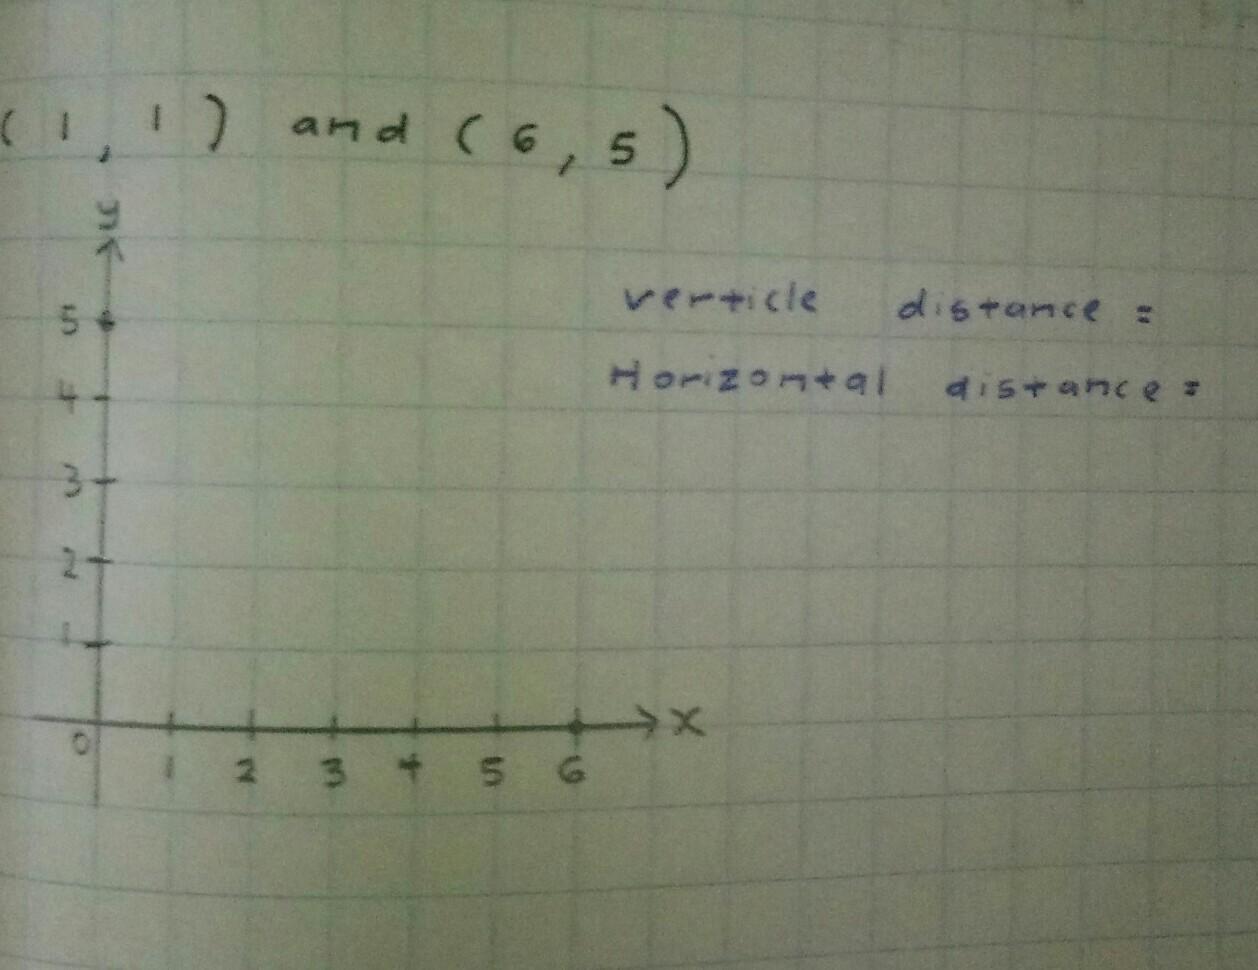 (1, 1) and (6, 5)
y
verticle distance =
Horizontal distance =
5
4
3
2
1
x
0 1 2 3 4 5 6